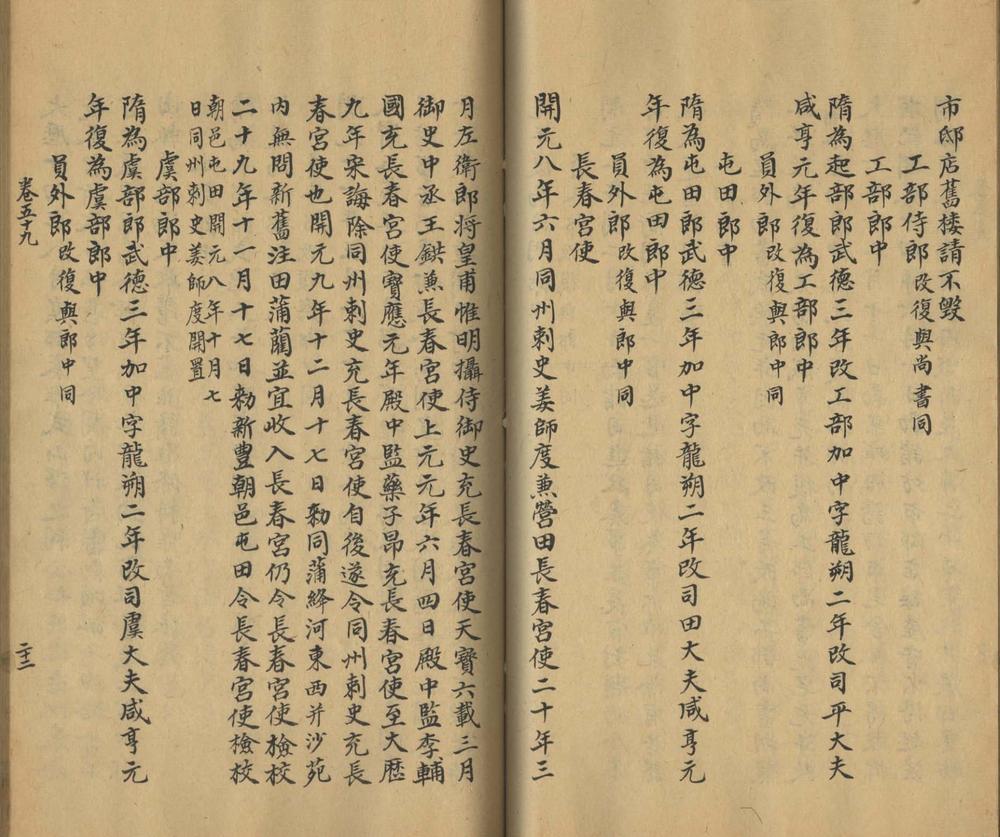 市邸店舊楼請不毀
工部侍郎改復與尚書同
工部郎中
隋為起部郎武德三年改工部加中字龍朔二年改司平大夫
咸亨元年復為工部郎中
員外郎改復與郎中同
屯田郎中
隋為屯田郎武德三年加中字龍朔二年改司田大夫咸亨元
年復為屯田郎中
員外郎改復與郎中同
長春宮使
開元八年六月同州刺史姜師度兼營田長春宮使二十年三
月左衛郎將皇甫惟明攝侍御史充長春宮使天寶六載三月
御史中丞王鉷兼長春宮使上元元年六月四日殿中監李輔
國充長春宮使寶應元年殿中監藥子昂充長春宮使至大歷
九年宋誨除同州刺史充長春宮使自後遂令同州刺史充長
春宮使也開元九年十二月十七日勑同蒲絳河東西并沙苑
內無問新舊注田蒲藺並宜收入長春宮仍令長春宮使檢校
二十九年十一月十七日勑新豐朝邑屯田令長春宮使檢校
朝邑屯田開元八年十月七
日同州刺史姜師度開置
虞部郎中
隋為虞部郎武德三年加中字龍朔二年改司虞大夫咸亨元
年復為虞部郎中
員外郎改復與郎中同
卷五十九
二十二